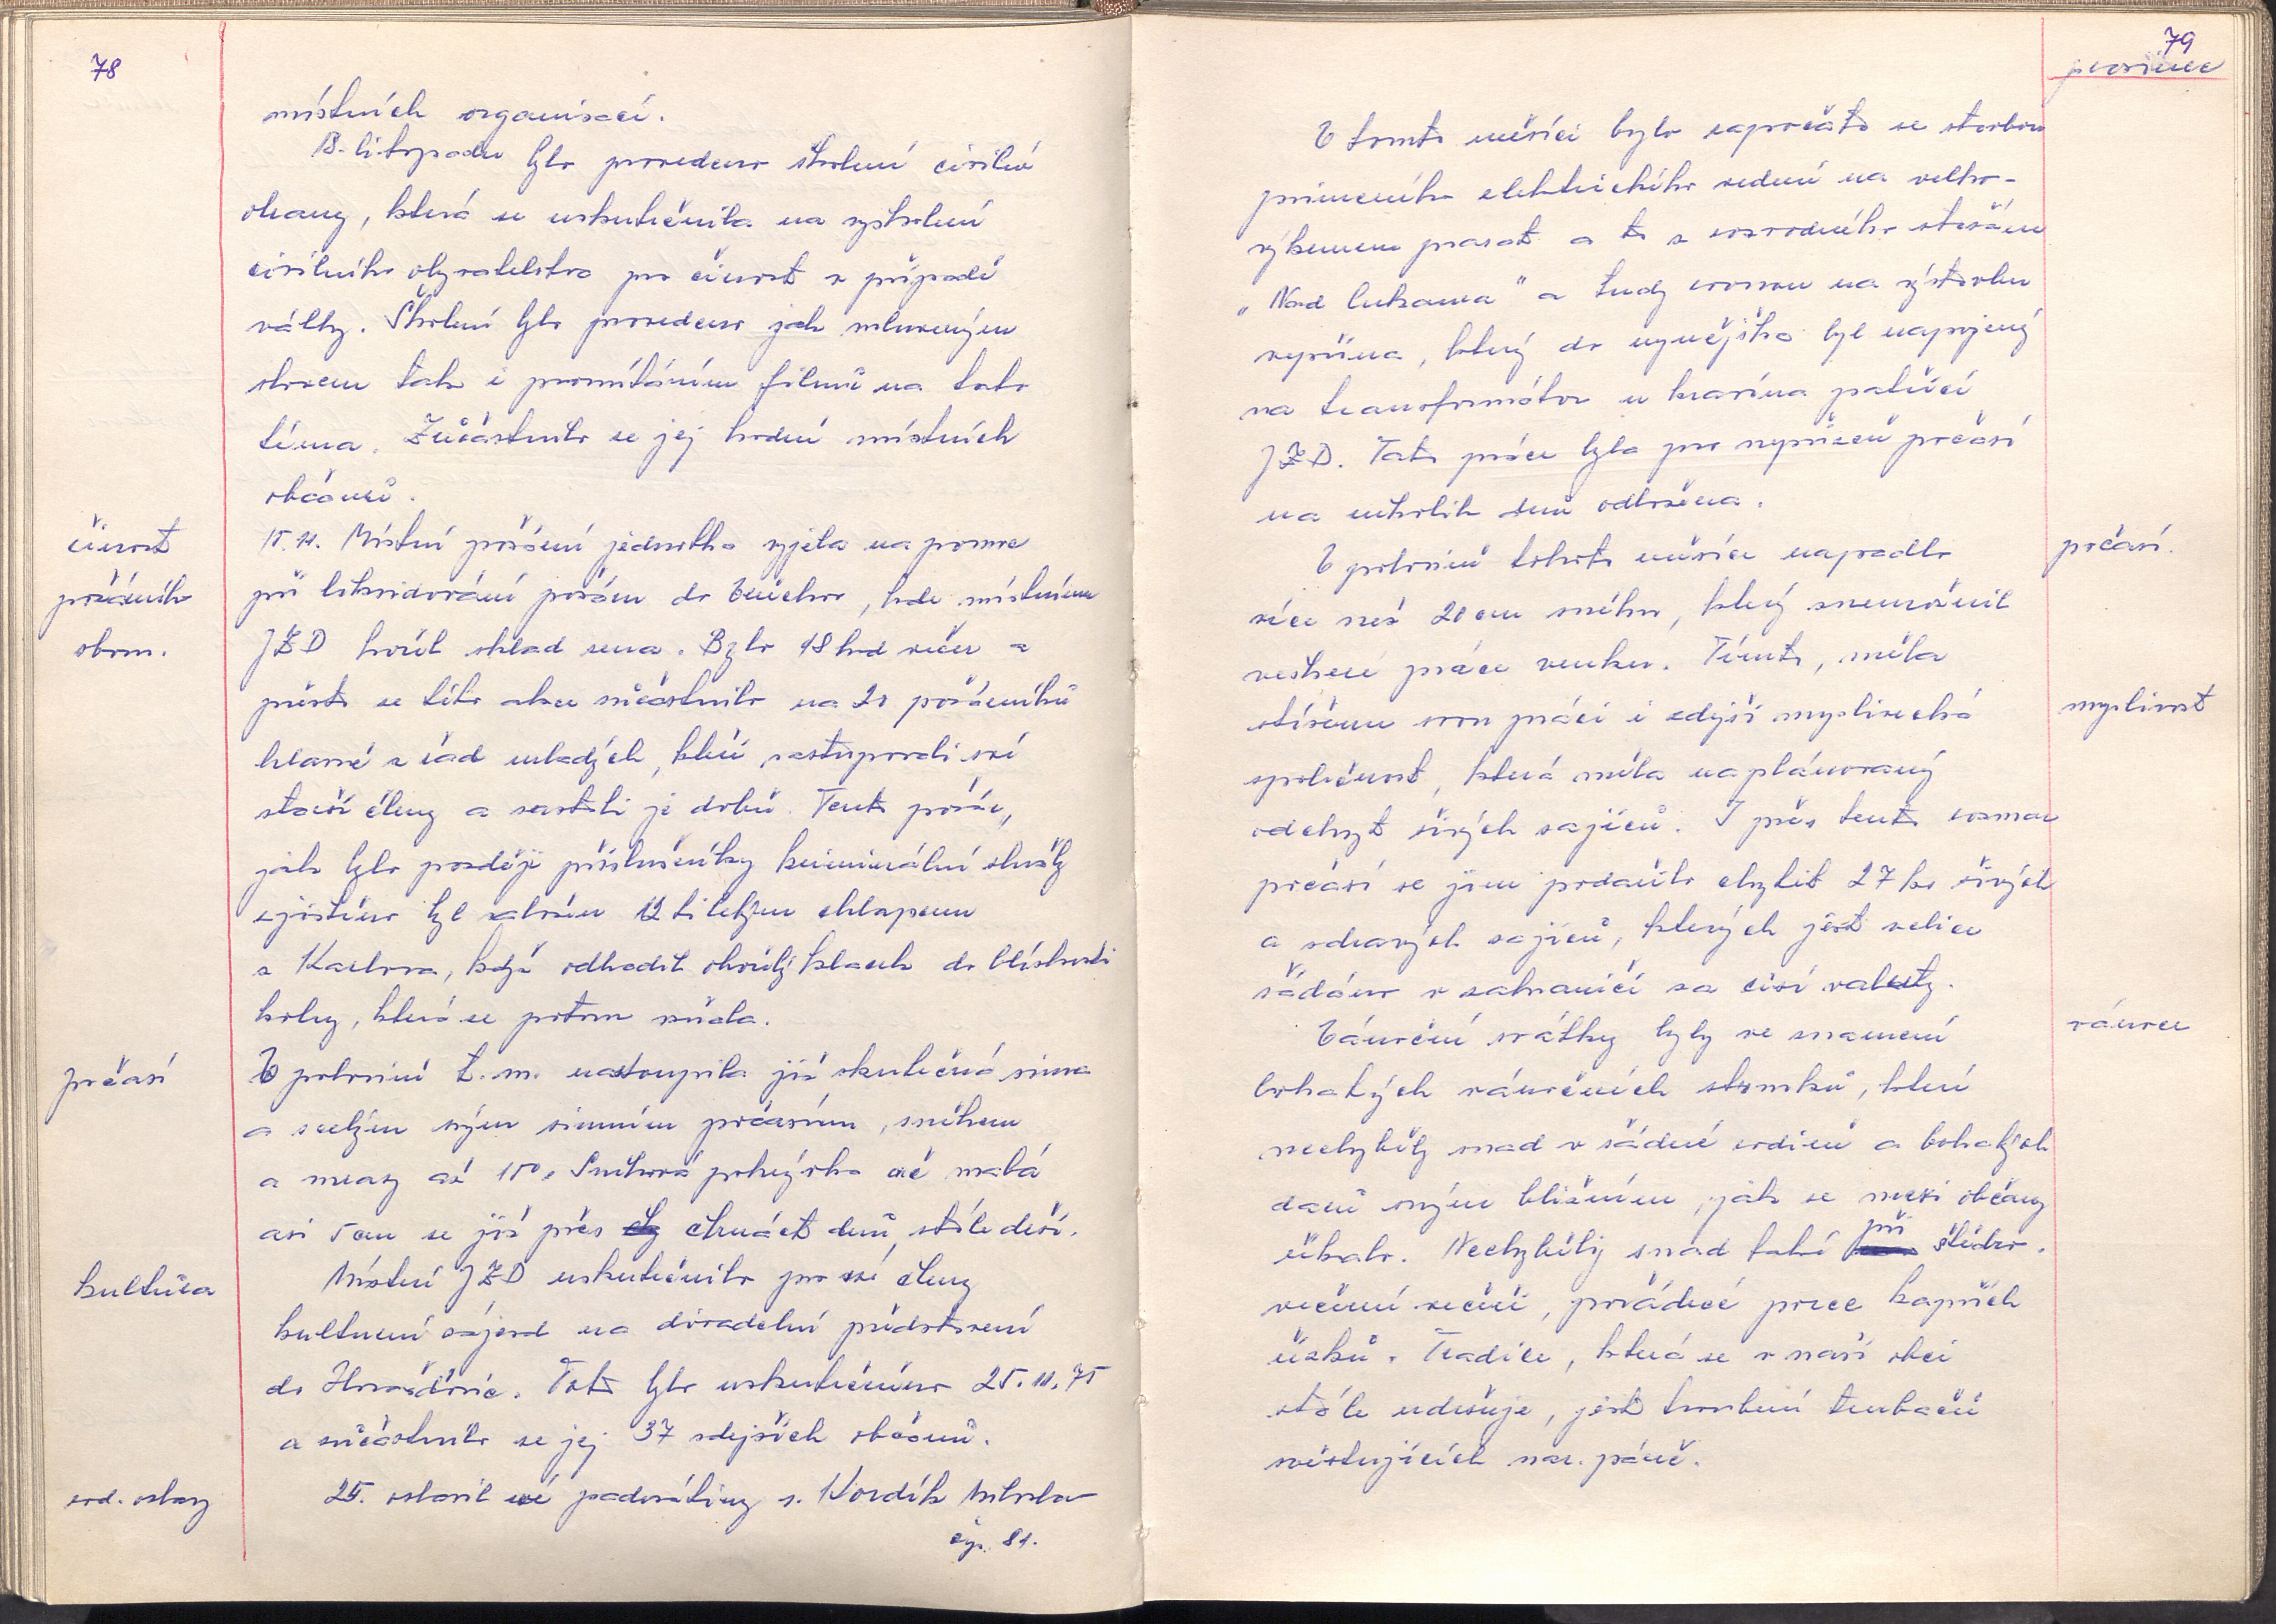 78
místních organisací.
13. listopadu bylo provedeno školení civilní
obrany, která se uskutečnila na vyškolení
civilního obyvatelstva pro činnost v případě
války. Školení bylo provedeno jak mluveným
slovem tak i promítáním filmů na toto
téma. Zúčastnilo se jej hodně místních
občanů.
činnost
požárního
sboru.
15.11. Místní požární jednotka vyjela na pomoc
při likvidování požáru do Věchova, kde místnímu
JZD hořel sklad sena. Bylo 18 hod večer a
přesto se této akce zúčastnilo na 20 požárníků
hlavně z řad mladých, kteří zastupovali své
starší členy a zastali je dobře. Tento požár,
jak bylo později příslušníky kriminální služby
zjištěno byl založen 12 tiletým chlapcem
z Karlova, když odhodil škrtlý klacek do blízkosti
kolny, která se potom vžala.
počasí
V polovině t.m. nastoupila již skutečná zima
a s celým svým zimním počasím, sněhem
a mrazy až 15°. Sněhová pokrývka ač malá
asi 5 cm se již přes čtrnáct dnů stále drží.
kultura
Místní JZD uskutečnilo pro své členy
kulturní zájezd na divadelní představení
do Hroznětína. Toto bylo uskutečněno 25.11.75
a zúčastnilo se jej 37 zdejších občanů.
rod. oslavy
25. oslavil své padesátiny s. Kordík
čp. 81.
79
prosinec
V tomto měsíci bylo započato se stavbou
primerního elektrického vedení na velko-
výkrmnu prasat a to z rozvodného stožáru
"Nad lukama" a tudy rovnou na výstavbu
vepřína, který do nynějška byl napojený
na transformátor u kravína patřící
JZD. Tato práce byla pro nepřízeň počasí
na několik dnů odložena.
počasí.
V polovině tohoto měsíce napadlo
více než 20 cm sněhu, který znemožnil
veškeré práce venku. Tímto, měla
myslivost
stíženu svou práci i zdejší myslivecká
společnost, která měla naplánovaný
odchyt živých zajíců. I přes tento rozmar
počasí se jim podařilo chytit 27 ks živých
a zdravých zajíců, kterých jest velice
žádáno v zahraničí za cizí valuty.
vánoce
Vánoční svátky byly ve znamení
bohatých vánočních stromků, které
nechyběly snad v žádné rodině a bohatých
darů svým bližním, jak se mezi občany
říkalo. Nechyběly snad také při štědro-
večerní večeři, pořádné porce kapřích
řízků. Tradice, která se v naší obci
stále udržuje, jest troubení trubačů
zvěstujících nar. páně.